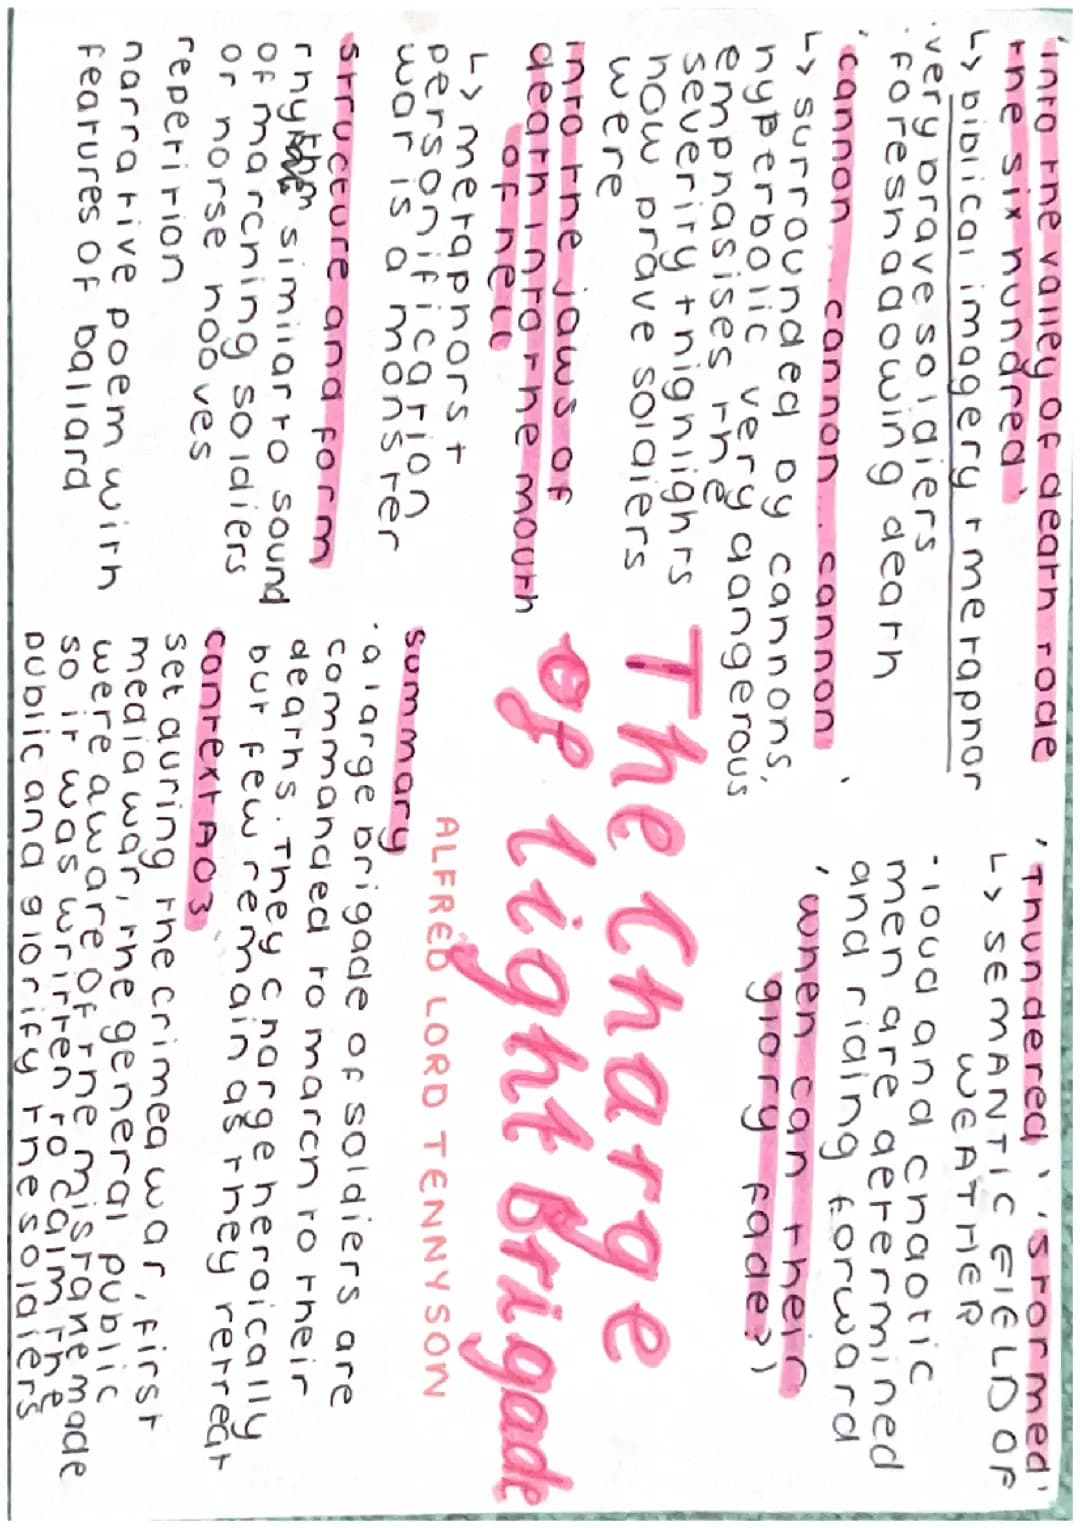 'into the valley of death rode
the six hundred'
↳ biblical imagery + metaphor
· very brave soldiers
· foreshadowing death
'cannon.. cannon.. cannon'
↳ surrounded by cannons,
hyperbolic very dangerous
emphasises the
severity + highlights
how brave soldiers
were
into the jaws of
death into the mouth
of hell
↳ metaphors +
personification
war is a monster
structure and form
rhythm similar to sound
of marching soldiers
or horse hooves
repetition
narrative poem with
features of ballard
'Thundered', 'stormed'
↳ SEMANTIC FIELD OF
WEATHER
· loud and chaotic
men are determined
and riding forward
'when can their
glory fade?'
The Charge
Of Light Brigade
ALFRED LORD TENNYSON
summary
· a large brigade of soldiers are
commanded to march to their
deaths. They charge heroically
but few remain as they retreat
context AO3
set during the crimea war, first
media war, the general public
were aware of the mistake made
so it was written to calm the
public and glorify the soldiers